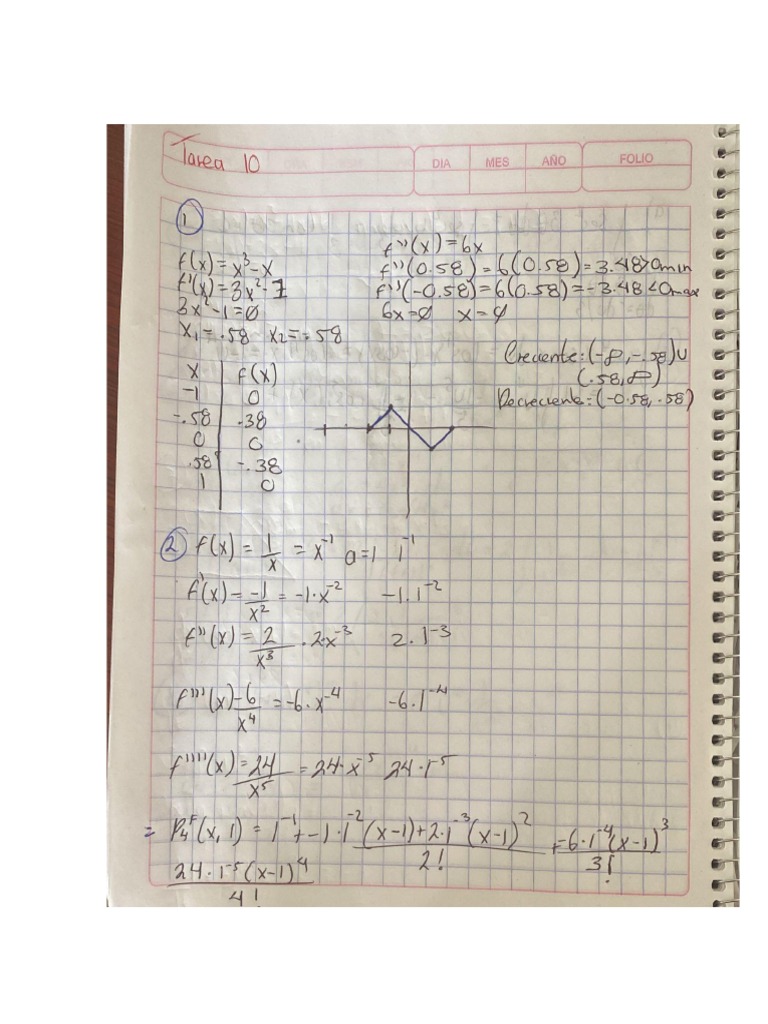 Tarea 10
DIA MES AÑO FOLIO
1
f(x) = x³-x
f'(x) = 3x²-1
3x²-1=0
x₁ = .58 x₂ = -.58
f''(x) = 6x
f''(0.58) = 6(0.58) = 3.48>0 min
f''(-0.58) = 6(0.58) = -3.48<0 max
6x=0 x=0
Creciente: (-∞, -.58)U
(.58, ∞)
Decreciente: (-0.58, .58)
x f(x)
-1 0
-.58 .38
0 0
.58 -.38
1 0
2 f(x) = 1/x = x⁻¹ a=1 1⁻¹
f'(x) = -1/x² = -1·x⁻² -1·1⁻²
f''(x) = 2/x³ · 2x⁻³ 2·1⁻³
f'''(x) -6/x⁴ = -6·x⁻⁴ -6·1⁻⁴
f''''(x) = 24/x⁵ = 24·x⁻⁵ 24·1⁻⁵
= P₄ᶠ(x,1) = 1⁻¹ + -1·1⁻² (x-1)+2·1⁻³(x-1)²/2! + -6·1⁻⁴(x-1)³/3!
24·1⁻⁵(x-1)⁴/4!